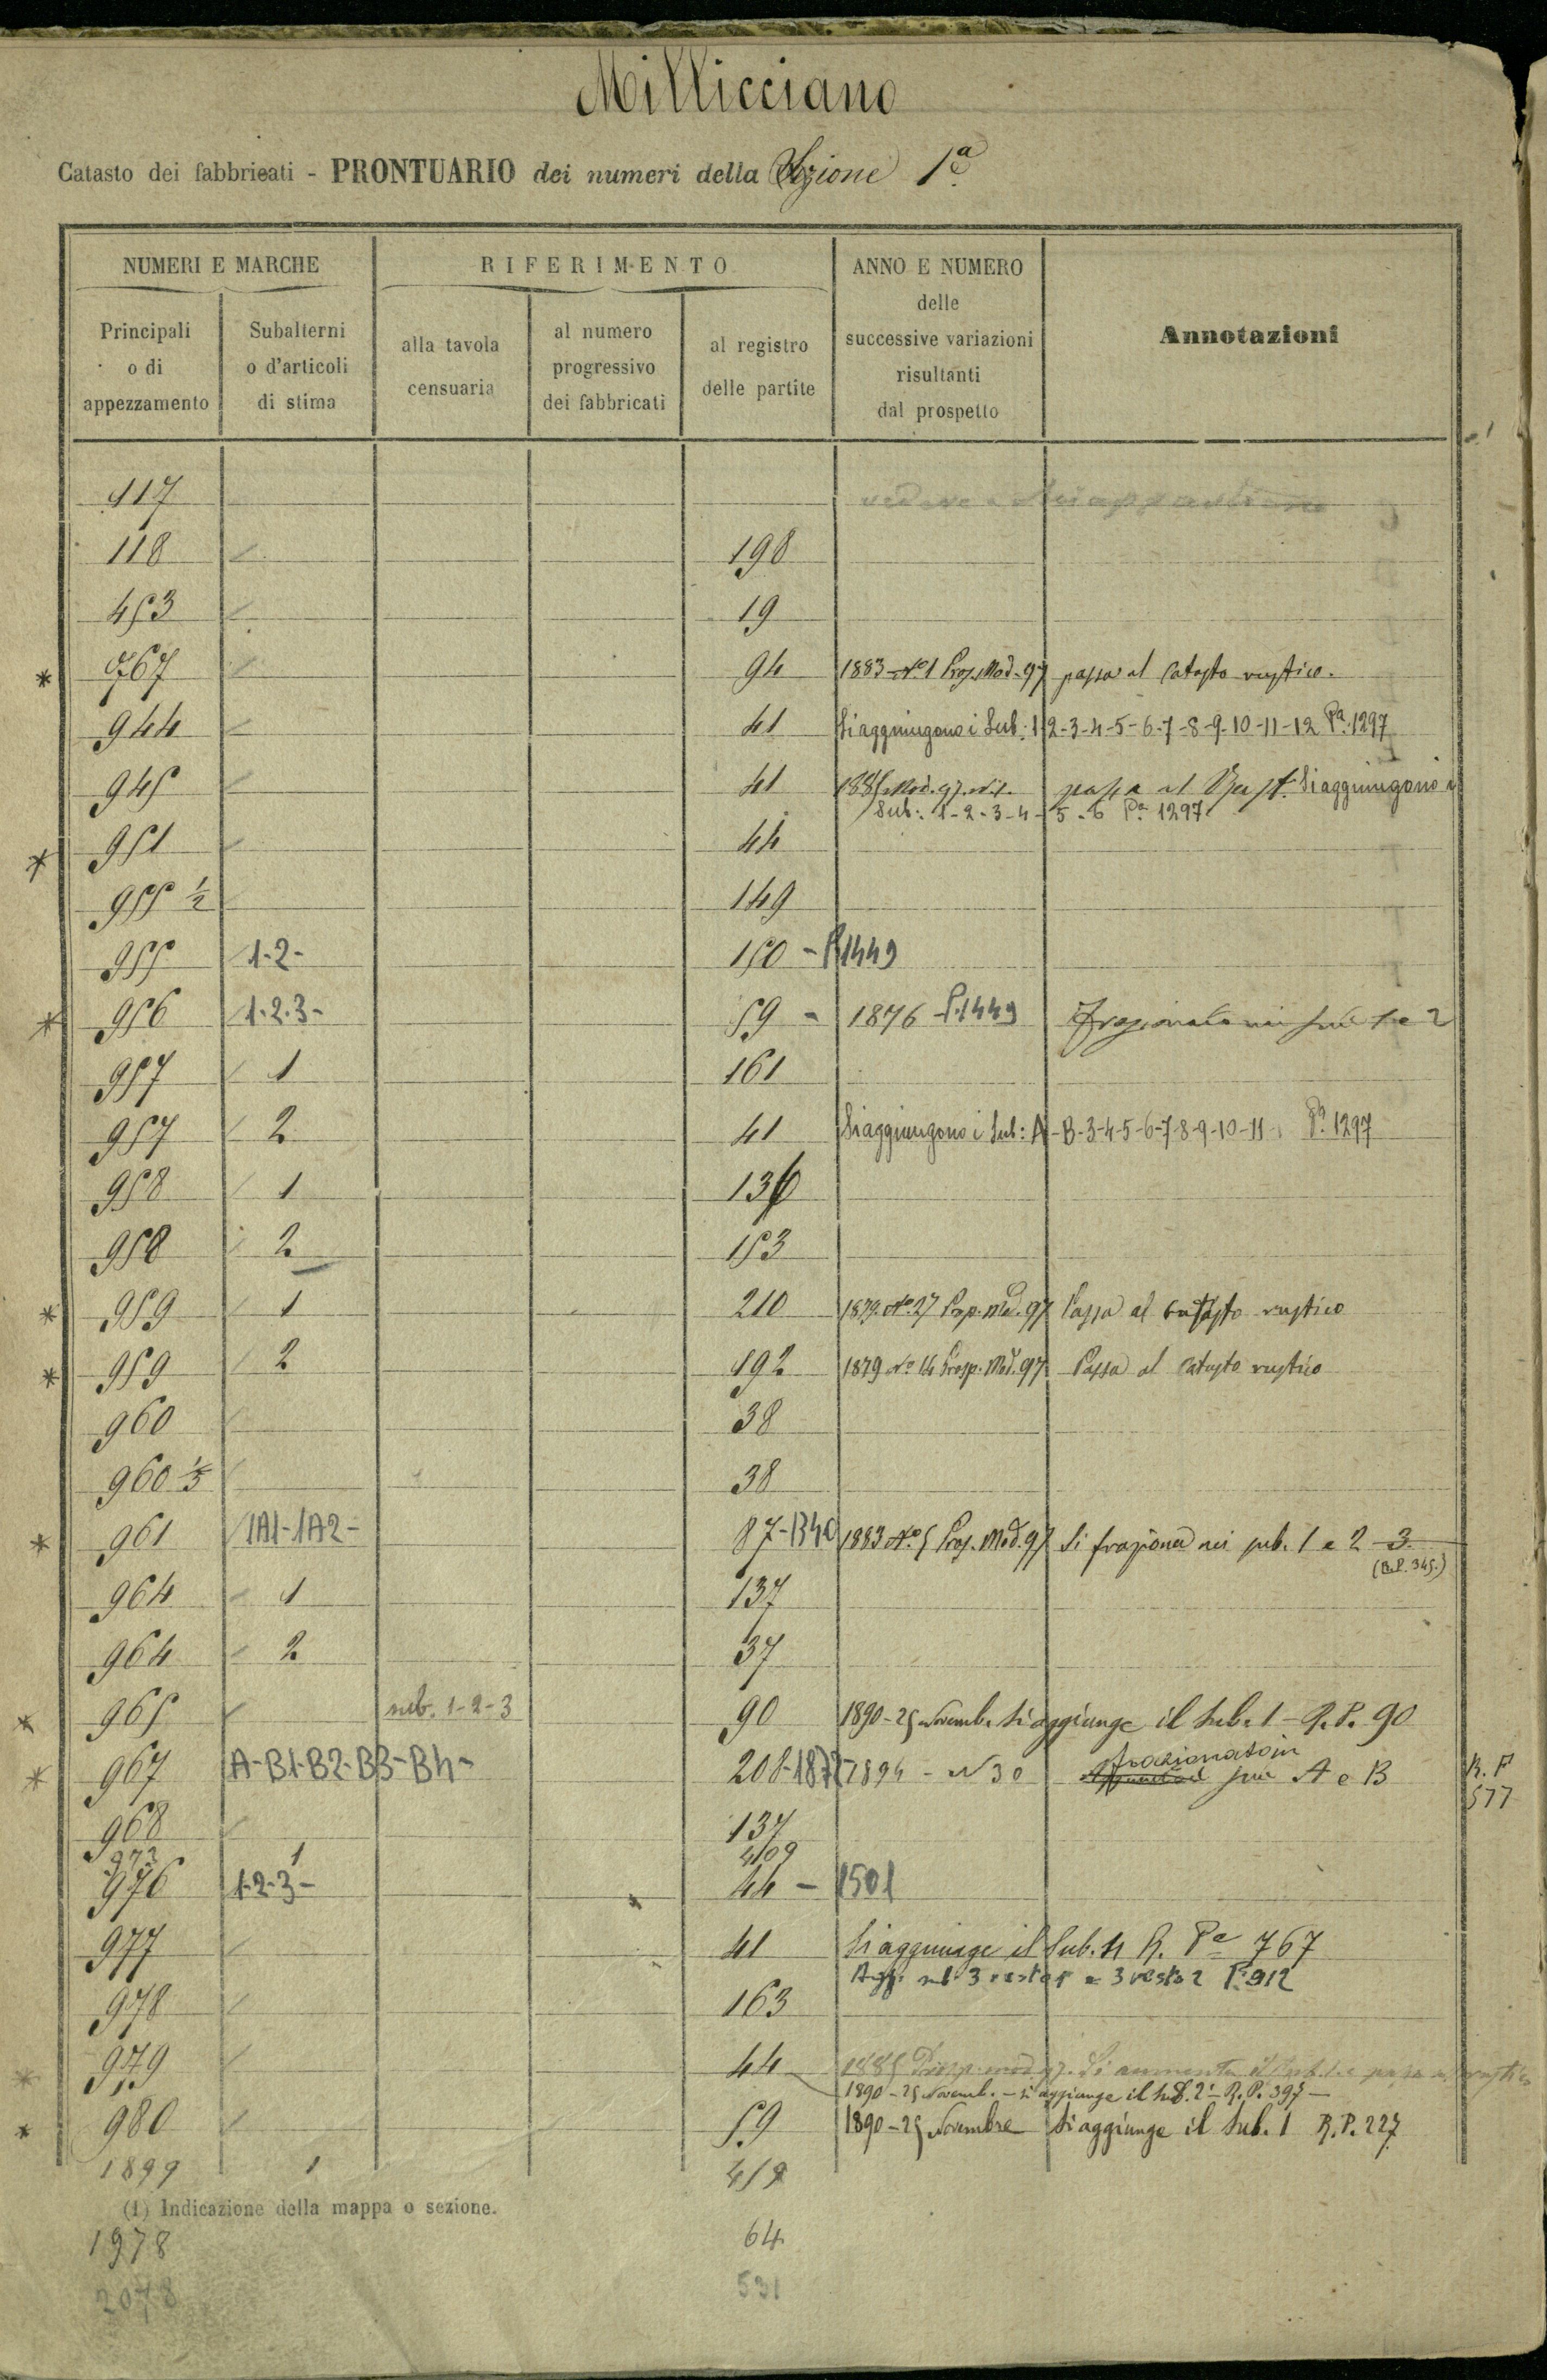 Millicciano
Catasto dei fabbricati - PRONTUARIO dei numeri della Sezione 1ª
NUMERI E MARCHE
RIFERIMENTO
ANNO E NUMERO delle successive variazioni risultanti dal prospetto
Annotazioni
Principali o di appezzamento
Subalterni o d'articoli di stima
alla tavola censuaria
al numero progressivo dei fabbricati
al registro delle partite
117
118 198
453 19
* 767 94 1883 - Nº 1 Prosp. Mod. 97 passa al Catasto rustico.
944 41 Si aggiungono i Sub. 1 2-3-4-5-6-7-8-9-10-11-12 Pª 1297
945 41 1885 Mod. 97. Nº 1. passa al Si aggiungono i
Sub: 1-2-3-4-5-6 Pª 1297
* 951 44
955 ½ 149
955 1-2- 150 - P 1449
* 956 1-2-3- 59 - 1876 - P. 1449 frazionato nei sub 1 e 2
957 1 161
957 2 41 Si aggiungono i Sub: A-B-3-4-5-6-7-8-9-10-11 Pª 1297
958 1 136
958 2 153
* 959 1 210 1879. Nº 27 Prosp. Mod. 97 Passa al catasto rustico
* 959 2 192 1879 Nº 14 Prosp. Mod. 97 Passa al catasto rustico
960 38
960 ⅓ 38
* 961 1A1-1A2- 87-1340 1883 Nº 5 Prosp. Mod. 97 Si fraziona nei sub. 1 e 2 3
(R.P. 345.)
964 1 137
964 2 37
* 965 sub. 1-2-3 90 1890 - 25 Novemb. Si aggiunge il Sub. 1 - R.P. 90
* 967 A-B1-B2-B3-B4- 208-1872 1894 - N 30 frazionato in sub A e B R. P 577
968 137
973 1 409
976 1-2-3- 44 - 1501
977 41 Si aggiunge il Sub. 4 R. Pª 767
Agg. sub 3 resta 3 resta 2 Pª 912
978 163
* 979 44 1885 Prosp. mod 97. Si aumenta il Sub. 1 e passa al rustico
1890 - 25 Novemb. - si aggiunge il sub. 2º - R.P. 395 -
* 980 59 1890 - 25 Novembre Si aggiunge il Sub. 1 R.P. 227
1899 1 419
(1) Indicazione della mappa o sezione.
1978 64
2078 531